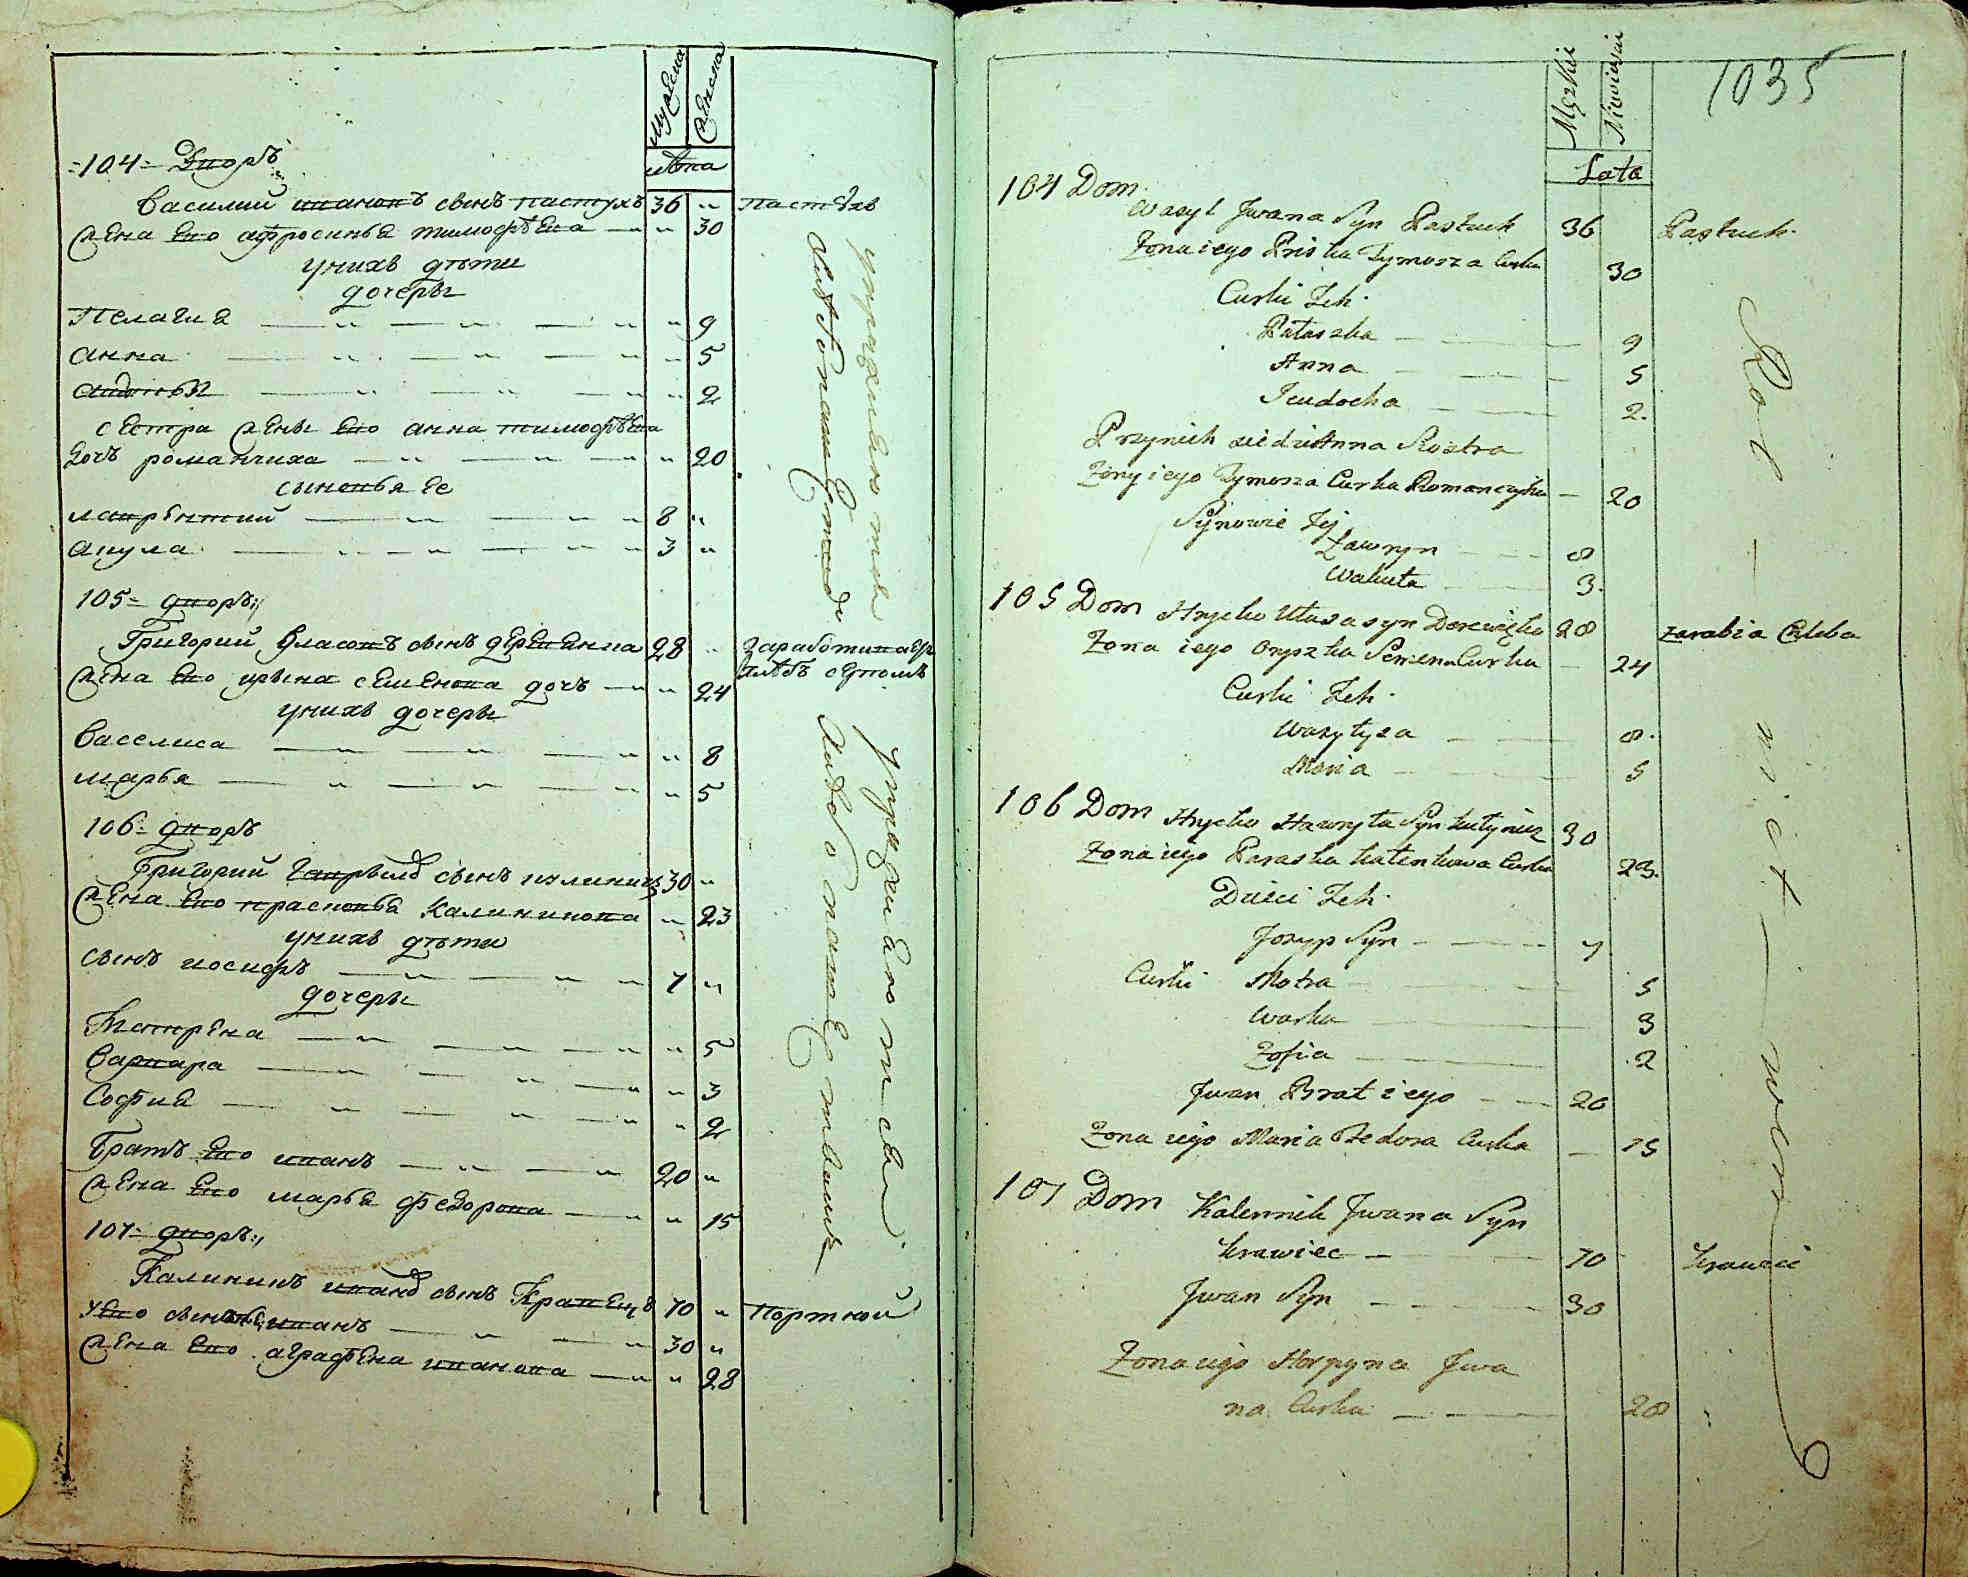 мужеска
женска
лѣта
=104= Дворъ
Василий ивановъ сынъ пастухъ 36 " Пастухъ
жена ево афросинья тимофѣева — " 30
у нихъ дѣти
дочеры
Пелагия — " — " — " " 9
анна — " — " — " " 5
авдотья — " — " — " " 2
сестра жены ево анна тимофѣева
дочъ романчиха — " — " — " " 20
сыновья ее
лаврѣнтий — " — " — " 8 "
акула — " — " — " 3 "
105= дворъ
Григорий Власовъ сынъ деревенка 28 " Заработиваетъ
жена ево ирына семенова дочъ — " " 24 хлѣбъ
у нихъ дочеры
Васелиса — " — " " 8
марья — " — " — " " 5
106= дворъ
Григорий Гаврыловъ сынъ 30 "
жена ево прасковья Калининова " 23
у нихъ дѣти
сынъ иосифъ — " — " 7 "
дочеры
Матрена — " — " — " " 5
Варвара — " — " — " " 3
София — " — " — " " 2
Братъ ево иванъ — " — " 20 "
жена ево марья федорова — " " 15
107= дворъ
Калининъ ивановъ сынъ Кравецъ 70 " Портной
у ево сынъ иванъ — " — " 30 "
жена ево аграфѣна иванова — " " 28
упражняются
хлѣбопашеством
упражняются
хлѣбопашеством
1035
Męzkie
Niewieście
Lata
104 Dom
Wasyl Jwana Syn Pastuch 36 Pastuch
Zona iego Priska Tymosza Curka 30
Curki Ich
Pałaszka — 9
Anna — 5
Jeudocha — 2
Przynich siedzi Anna Siostra
Zony iego Tymosza Curka Romanczycha — 20
Synowie Jey
Ławryn — 8
Wakuła — 3
105 Dom Hryćko Ułasa syn Derewięko 28 zarabia Chleba
Zona iego Oryszka Semena Curka — 24
Curki Ich
Wasyłysa — 8
Maria — 5
106 Dom Hryćko Hawryła Syn 30
Zona iego Paraska Kalenikowa Curka 23
Dzieci Ich
Jozyp Syn — 7
Curki Motra — 5
Warka — 3
Zofia — 2
Jwan Brat iego — 20
Zona iego Maria Fedora Curka — 15
107 Dom Kalennik Jwana Syn
Krawiec — 70 Krawiec
Jwan Syn — 30
Zona iego Horpyna Jwa
na Curka — 28
Rol — nict — wem